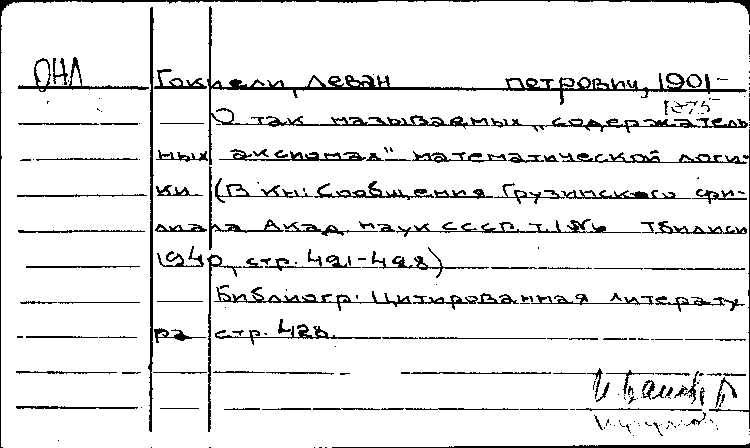 ОНЛ
Гокиели, Леван Петрович, 1901-
1975
О так называемых „содержатель
ных аксиомах" математической логи-
ки (В кн: Сообщения Грузинского фи-
лиала Акад. наук СССР. т.1 №6 Тбилиси
1940, стр. 421-428)
Библиогр: Цитированная литерату
ра стр. 428.